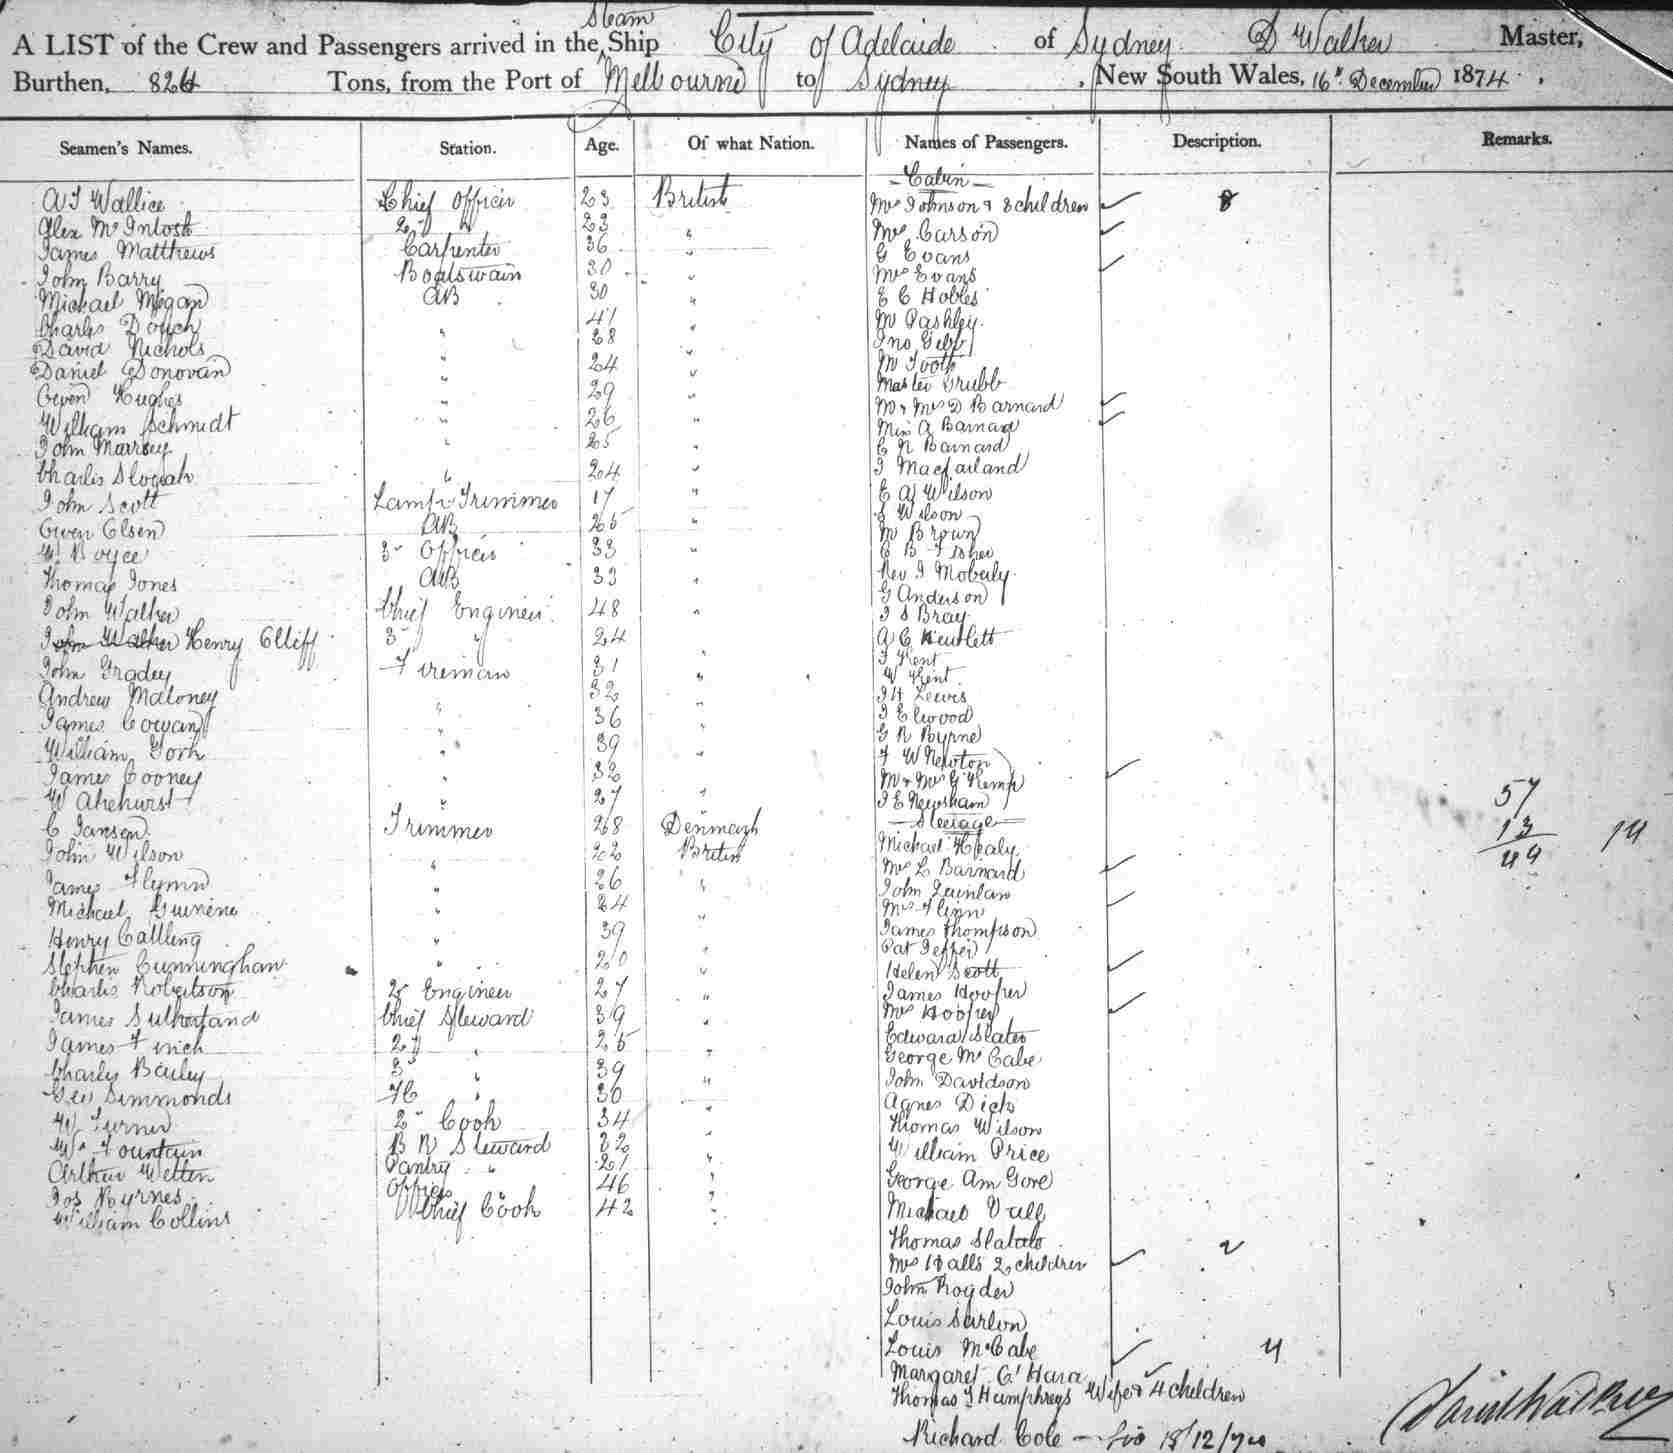 Steam
A LIST of the Crew and Passengers arrived in the Ship City of Adelaide of Sydney D Walker Master,
Burthen, 824 Tons, from the Port of Melbourne to Sydney, New South Wales, 16th December 1874.
Seamen's Names. Station. Age. Of what Nation. Names of Passengers. Description. Remarks.
Cabin
A J Wallice Chief Officer 23 British Mrs Johnson & 8 children 8
Alex McIntosh 2d " 23 " Mrs Carson
James Matthews Carpenter 36 " G Evans
John Barry Boatswain 30 " Mrs Evans
Michael Megan AB 30 " E C Hobles
Charles Douch " 41 " M Pashley
David Nichols " 28 " Jno
Daniel Donovan " 24 " M Tooth
Owen Hughes " 29 " Master Grubb
William Schmidt " 26 " Mr & Mrs D Barnard
John Marsey " 25 " Miss A Barnard
Charles " 24 " E N Barnard
John Scott Lamp Trimmer 17 " J Macfarland
Owen Olsen AB 25 " E A Wilson
W Boyce 3d Officer 33 " S Wilson
Thomas Jones AB 33 " M Brown
John Walker Chief Engineer 48 " C B Fisher
Henry Elliff 3d " 24 Rev J Moberly
John Gradey Fireman 31 " G Anderson
Andrew Maloney " 32 " J S Bray
James Cowan " 36 " A C Hewlett
William York " 39 " J Kent
James Cooney " 32 " W Kent
W Akehurst " 27 " J H Lewis
C Jansen Trimmer 28 Denmark J Elwood
John Wilson " 22 British G R Byrne
James Flynn " 26 " F W Newton
Michael " 24 " Mr & Mrs G Kemp
Henry Cattling " 39 " J E Newsham
Stephen Cunningham " 20 " Steerage
Charles Robertson 2d Engineer 27 " Michael Healy
James Sutherland Chief Steward 39 " Mrs L Barnard
James Finch 2d " 25 " John Quinlan
Charles Bailey 3d " 39 " Mrs Flinn
Geo Simmonds " 30 " James Thompson
W Turner 2d Cook 34 " Pat
Wm Fountain B R Steward 32 " Helen Scott
Arthur Wetten Pantry " 21 " James Hooper
Jos Byrnes Officers " 46 " Mrs Hooper
William Collins Chief Cook 42 " Edward Slater
George McCabe
John Davidson
Agnes Dick
Thomas Wilson
William Price
George Am Gore
Michael
Thomas
Mrs Halls 2 children 2
John Royder
Louis
Louis McCabe
Margaret O'Hara 4
Thomas J Humphreys Wife & 4 children
Richard Cole 18/12/74
57
13
44 14
David Walker